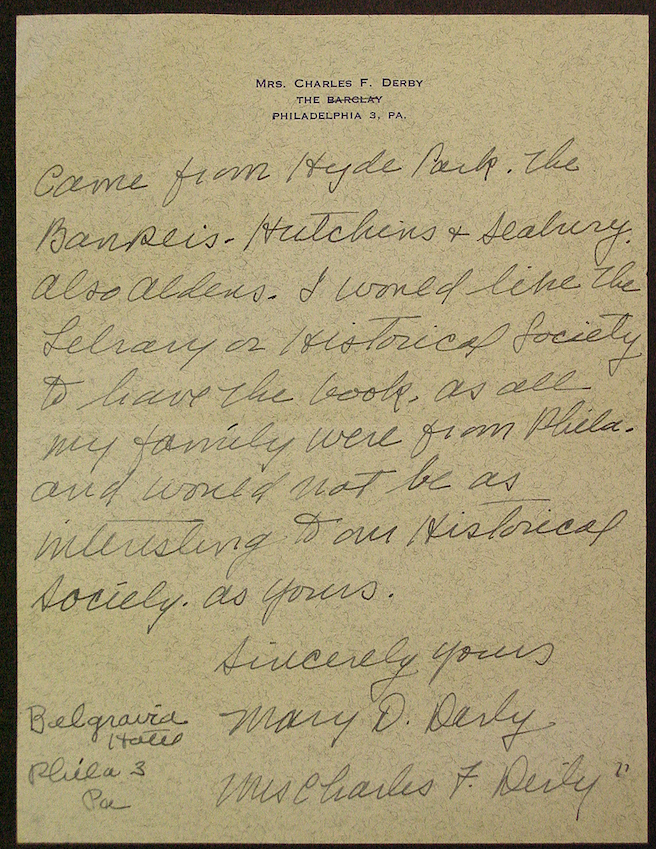 MRS. CHARLES F. DERBY
THE BARCLAY
PHILADELPHIA 3, PA.
Came from Hyde Park. The
Bankeis - Hutchins + Seabury.
also aldens. I would like the
Library or Historical Society
to have the book. as all
my family were from Phila.
and would not be as
interesting to our Historical
Society. as yours.
Sincerely yours
Mary D. Derby
Mrs Charles F. Derby "
Belgravia
Hotel
Phila 3
Pa